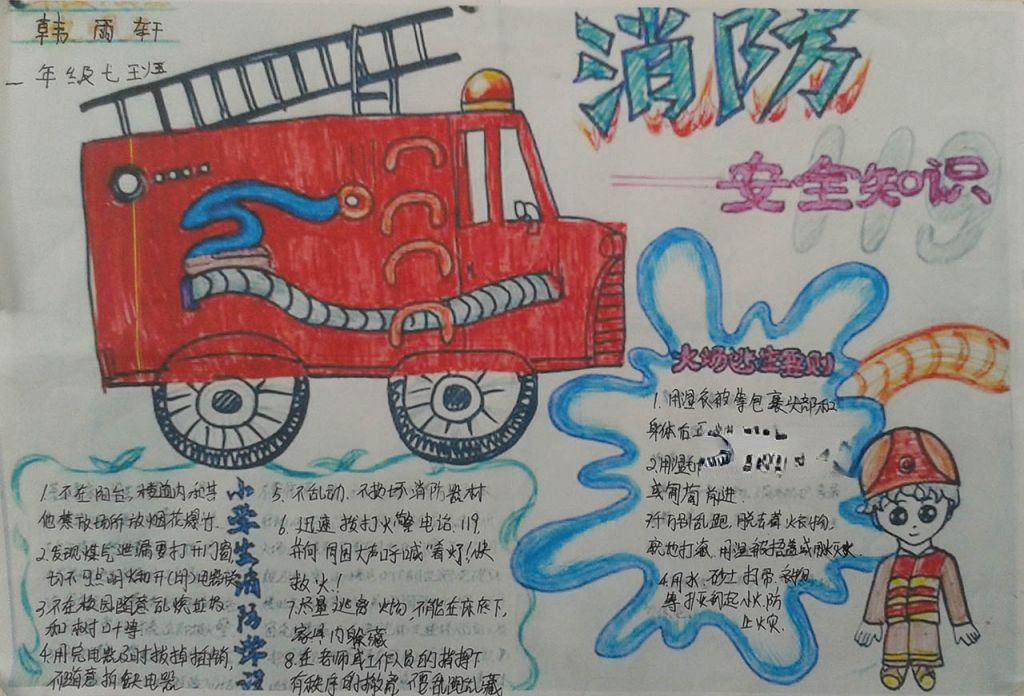 韩雨轩
一年级七班
消防
安全知识
119
火场逃生要则
1.用湿衣被等包裹头部和
身体后
2.用湿
或匍匐前进.
乱跑,脱去着火衣物,
就地打滚,用湿被
4.用水、砂土、扫帚、
等扑灭初起小火,防
止火灾.
小学生消防常识
1.不在阳台、楼道内及其
他禁放场所放烟花爆竹.
2.发现煤气泄漏要打开门窗,
切不可点明火和开(闭)电器
3.不在校园随意乱烧垃圾
和树叶等
4.用完电器及时拔掉插销,
不随意拆装电器
5.不乱动、不损坏消防器材
6.迅速拨打火警电话119
并向周围大声呼喊"着火了快
救火!
7.尽量逃离火场,不能在床底下,
家具内躲藏
8.在老师或工作人员的指挥下
有秩序的撤离,不要乱跑乱藏